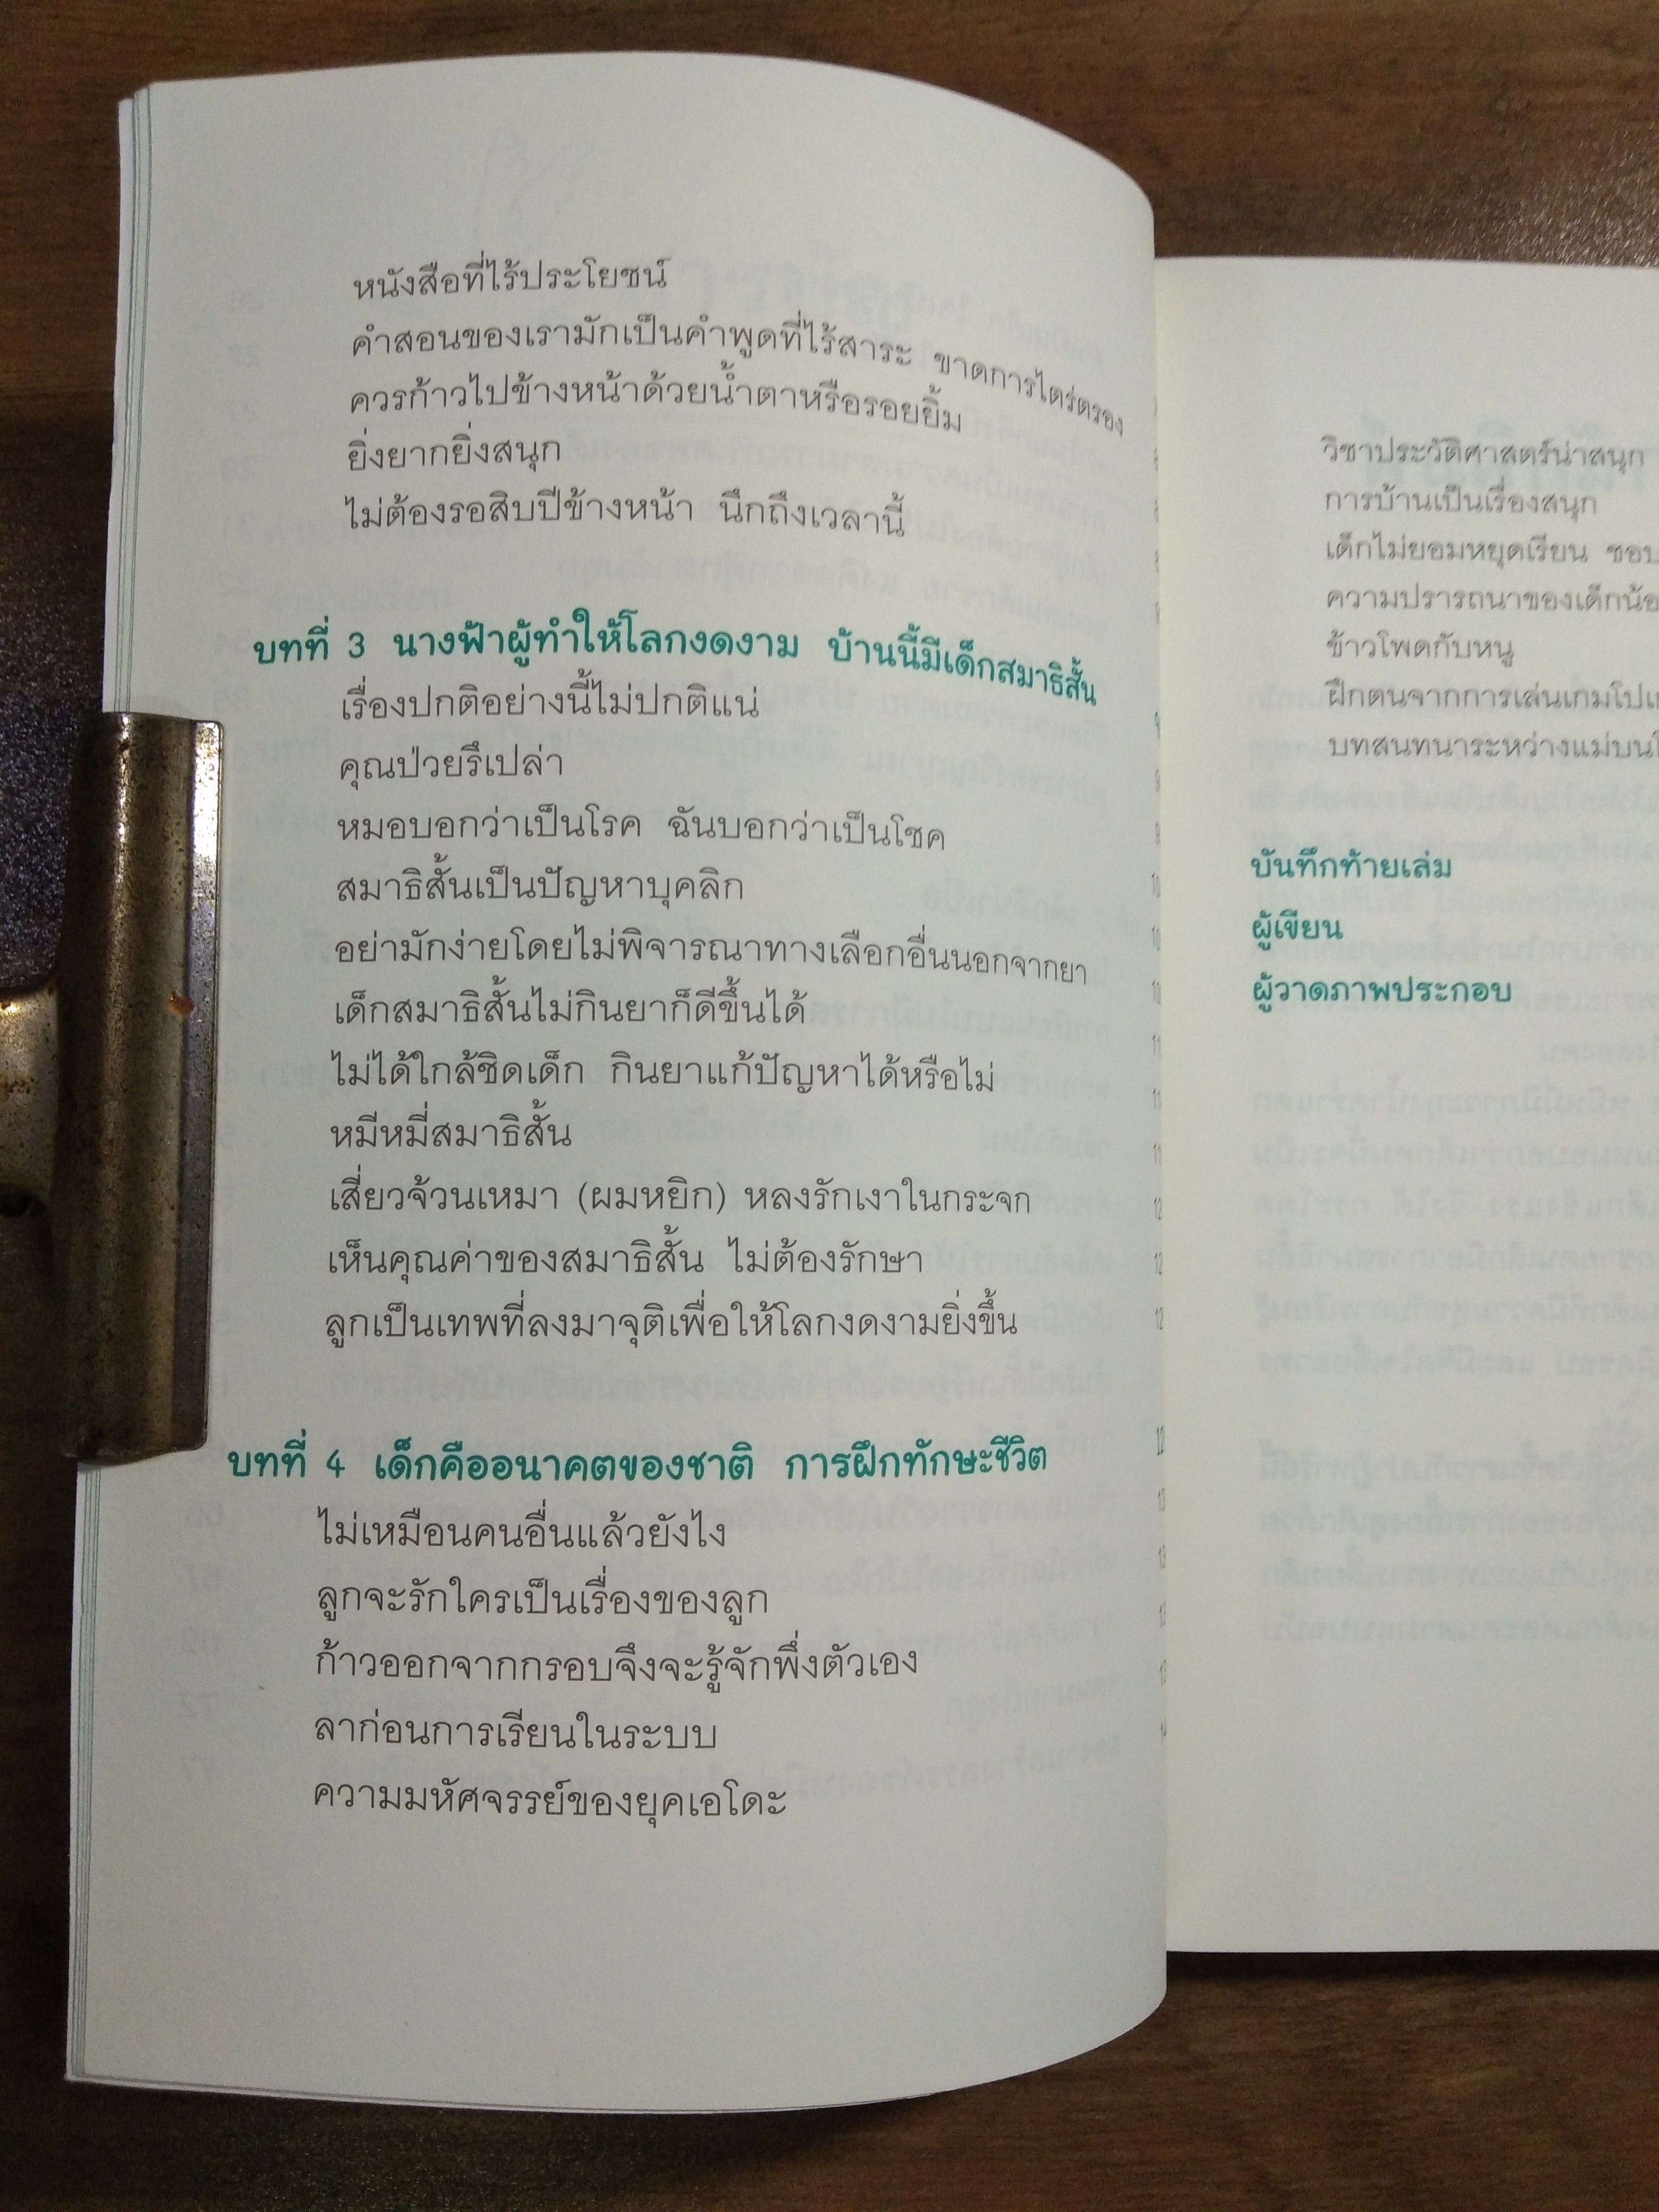 หนังสือที่ไร้ประโยชน์
คำสอนของเรามักเป็นคำพูดที่ไร้สาระ ขาดการไตร่ตรอง
ควรก้าวไปข้างหน้าด้วยน้ำตาหรือรอยยิ้ม
ยิ่งยากยิ่งสนุก
ไม่ต้องรอสิบปีข้างหน้า นึกถึงเวลานี้
บทที่ 3 นางฟ้าผู้ทำให้โลกงดงาม บ้านนี้มีเด็กสมาธิสั้น
เรื่องปกติอย่างนี้ไม่ปกติแน่
คุณป่วยรึเปล่า
หมอบอกว่าเป็นโรค ฉันบอกว่าเป็นโชค
สมาธิสั้นเป็นปัญหาบุคลิก
อย่ามักง่ายโดยไม่พิจารณาทางเลือกอื่นนอกจากยา
เด็กสมาธิสั้นไม่กินยาก็ดีขึ้นได้
ไม่ได้ใกล้ชิดเด็ก กินยาแก้ปัญหาได้หรือไม่
หมีหมี่สมาธิสั้น
เสี่ยวจ้วนเหมา (ผมหยิก) หลงรักเงาในกระจก
เห็นคุณค่าของสมาธิสั้น ไม่ต้องรักษา
ลูกเป็นเทพที่ลงมาจุติเพื่อให้โลกงดงามยิ่งขึ้น
บทที่ 4 เด็กคืออนาคตของชาติ การฝึกทักษะชีวิต
ไม่เหมือนคนอื่นแล้วยังไง
ลูกจะรักใครเป็นเรื่องของลูก
ก้าวออกจากกรอบจึงจะรู้จักพึ่งตัวเอง
ลาก่อนการเรียนในระบบ
ความมหัศจรรย์ของยุคเอโดะ
วิชาประวัติศาสตร์น่าสนุก
การบ้านเป็นเรื่องสนุก
เด็กไม่ยอมหยุดเรียน ชอบ
ความปรารถนาของเด็กน้อ
ข้าวโพดกับหนู
ฝึกตนจากการเล่นเกมโปเ
บทสนทนาระหว่างแม่บนโ
บันทึกท้ายเล่ม
ผู้เขียน
ผู้วาดภาพประกอบ